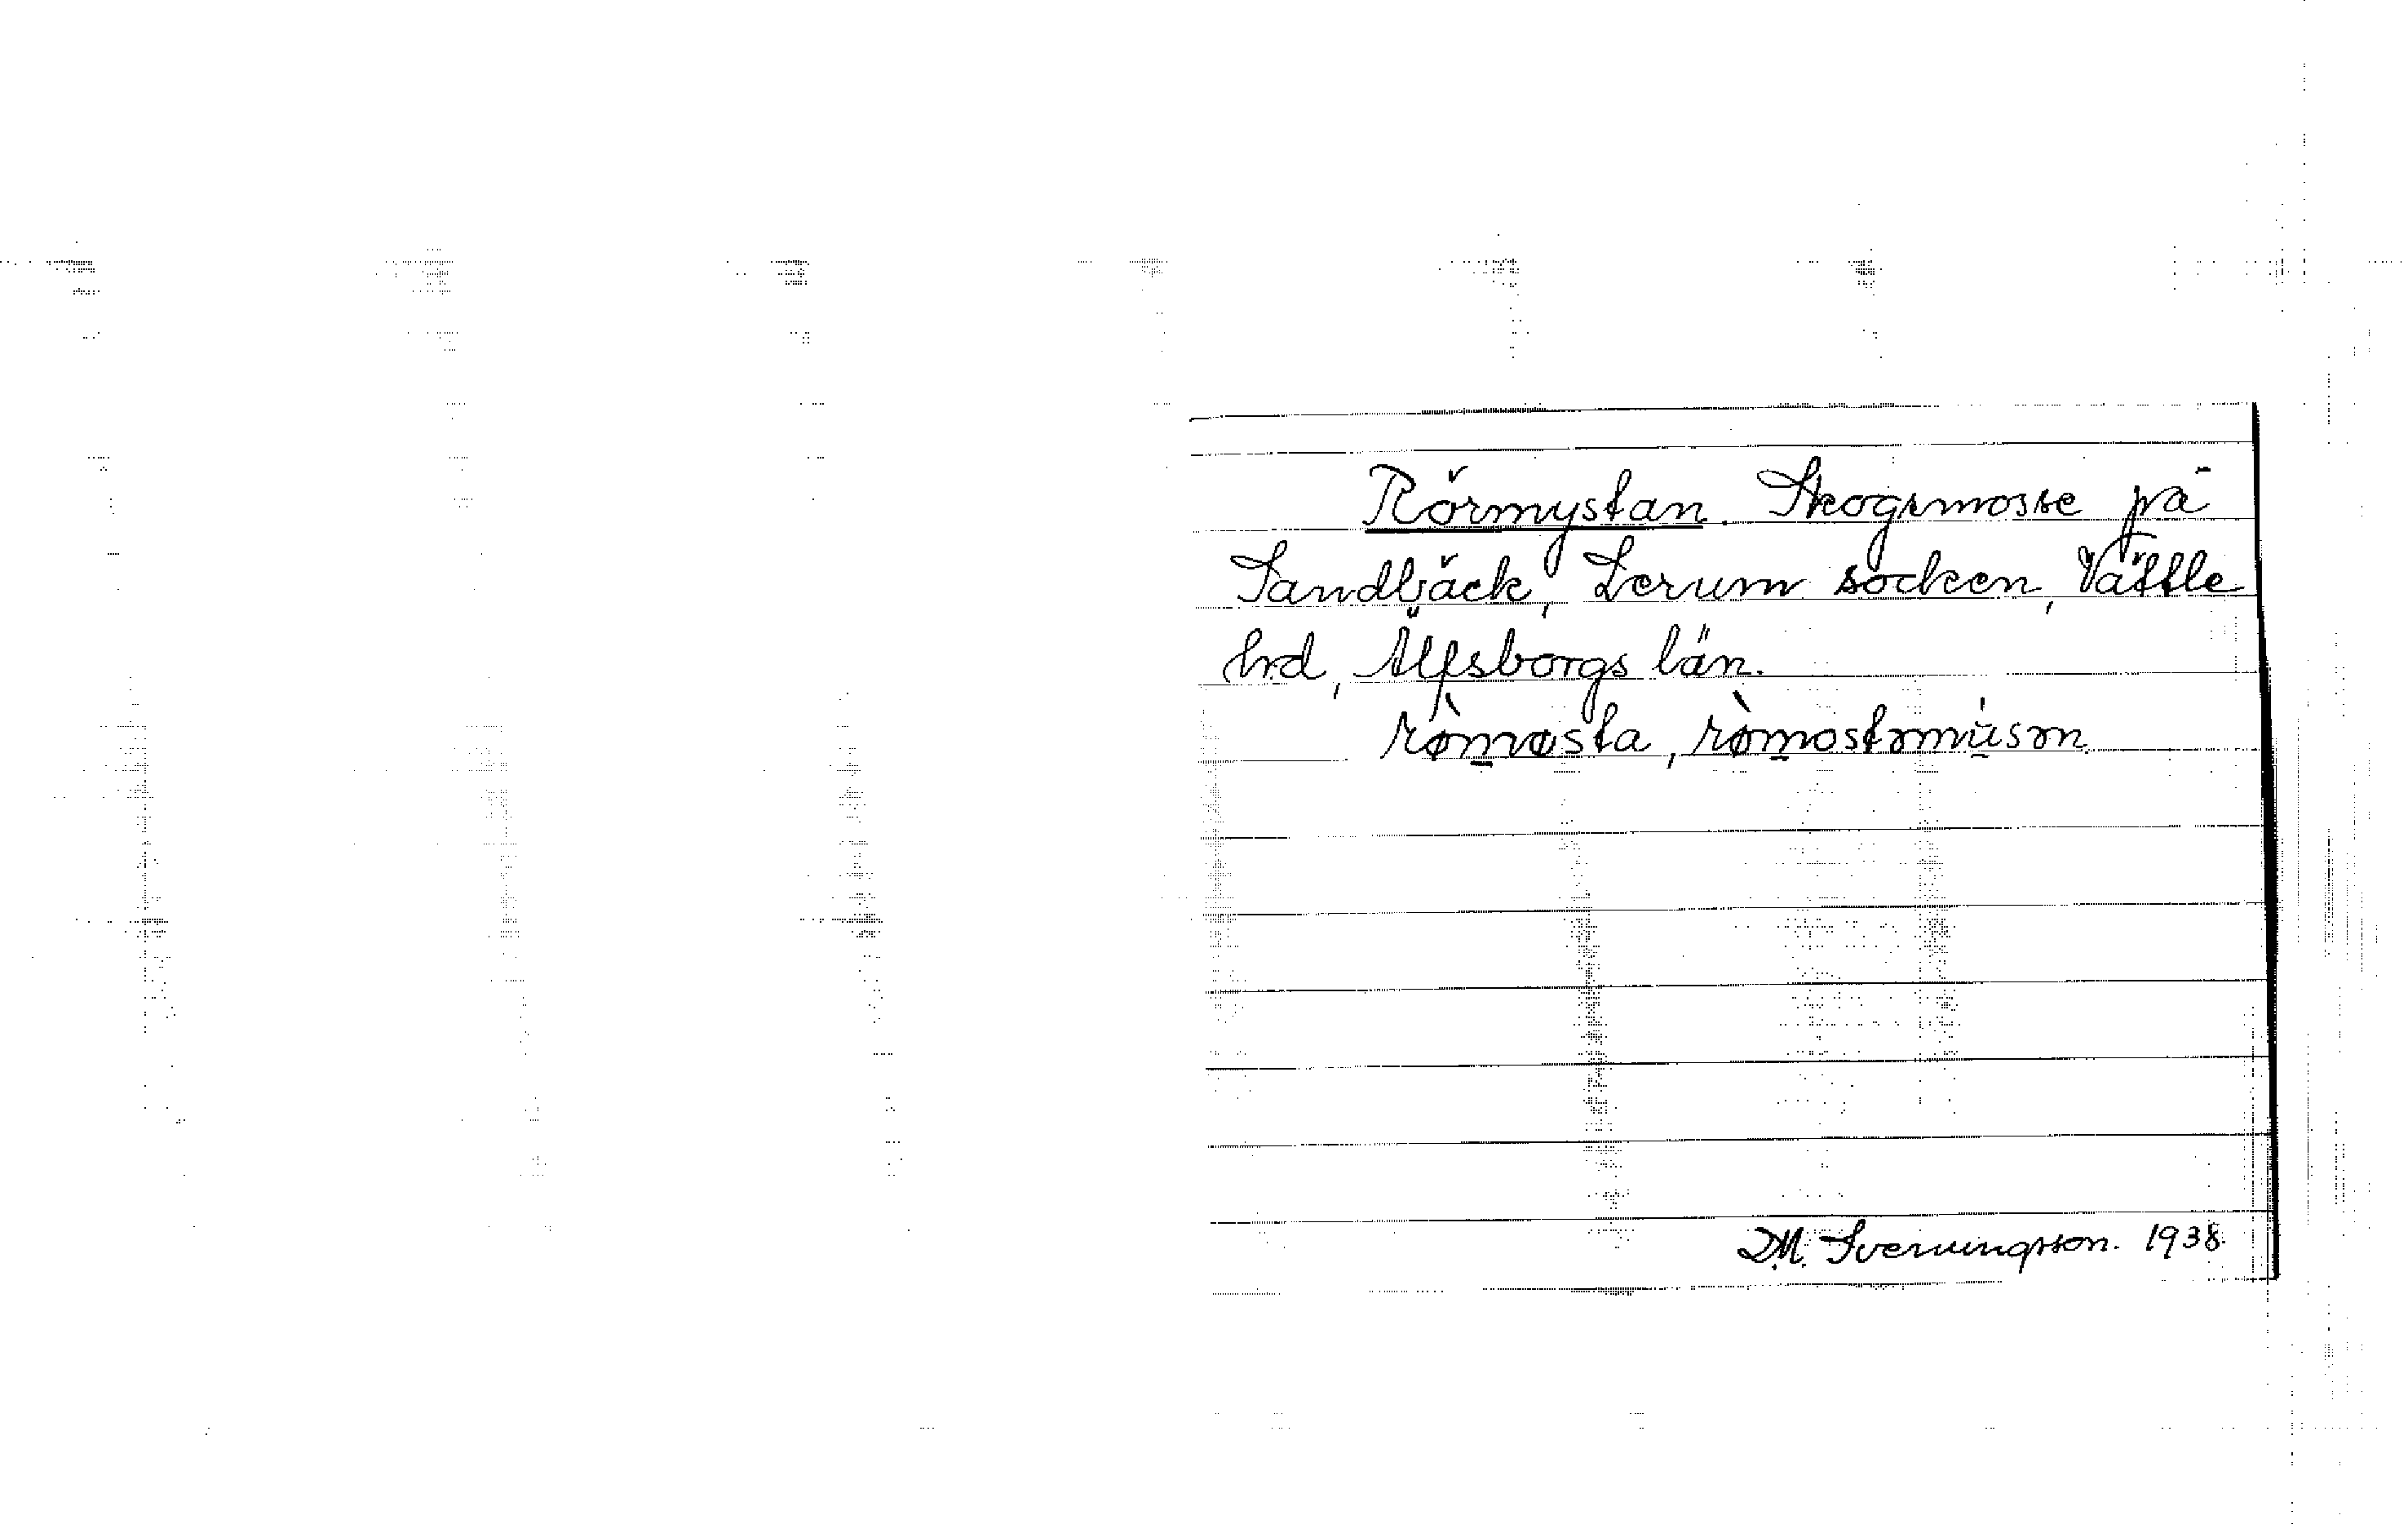 Rörmystan. Skogsmosse på
Sandbäck, Lerum socken, Vättle
hrd, Älfsborgs län.
rø̀møsta, rø̀mostəmúsən.
D.M. Sverningsson. 1938.